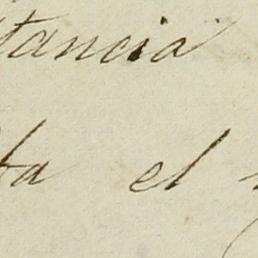 tancia
ta el